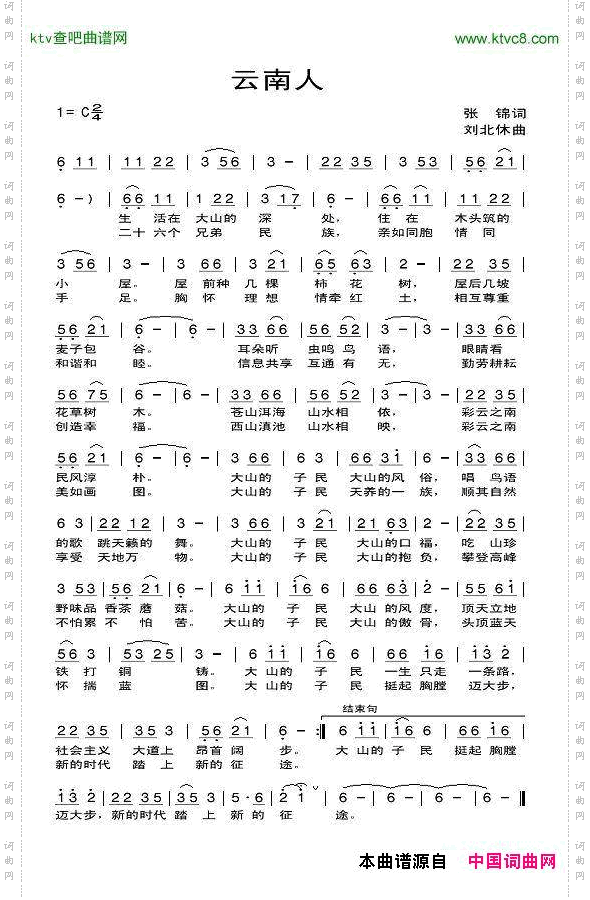 ktv查吧曲谱网 www.ktvc8.com
云南人
1= C 2/4 张 锦词
刘北休曲
6 11 | 11 22 | 3 56 | 3 - | 22 35 | 3 53 | 56 21 |
6 - ) | 66 11 | 1 22 | 3 17 | 6 - | 66 11 | 11 22 |
生 活在 大山的 深 处， 住 在 木头筑的
二十六个 兄弟 民 族， 亲如同胞 情 同
3 56 | 3 - | 3 66 | 3 21 | 65 63 | 2 - | 22 35 |
小 屋。 屋 前种 几 棵 柿 花 树， 屋后几坡
手 足。 胸 怀 理 想 情牵 红 土， 相互尊重
56 21 | 6 - | 6 - | 33 66 | 56 52 | 3 - | 3 - | 33 66 |
麦子包 谷。 耳朵听 虫鸣 鸟 语， 眼睛看
和谐和 睦。 信息共享 互通 有 无， 勤劳耕耘
56 75 | 6 - | 6 - | 33 66 | 56 52 | 3 - | 33 66 |
花草树 木。 苍山洱海 山水相 依， 彩云之南
创造幸 福。 西山滇池 山水相 映， 彩云之南
56 21 | 6 - | 6 - | 3 66 | 3 66 | 66 31 | 6 - | 33 66 |
民风淳 朴。 大山的 子 民 大山的风 俗， 唱 鸟语
美如画 图。 大山的 子 民 天养的一 族， 顺其自然
6 3 | 22 12 | 3 - | 3 66 | 3 21 | 21 63 | 2 - | 22 35 |
的歌 跳天籁的 舞。 大山的 子 民 大山的口 福， 吃 山珍
享受 天地万 物。 大山的 子 民 大山的抱 负， 攀登高峰
3 53 | 56 21 | 6 - | 6 11 | 16 6 | 66 53 | 6 - | 22 35 |
野味品 香茶 蘑 菇。 大山的 子 民 大山 的风 度， 顶天立地
不怕累 不 怕 苦。 大山的 子 民 大山 的傲 骨， 头顶蓝天
56 3 | 53 25 | 3 - | 6 11 | 16 6 | 66 16 | 13 2 |
铁 打 铜 铸。 大 山的 子 民 一生 只走 一条路，
怀 揣 蓝 图。 大 山的 子 民 挺起 胸膛 迈大步，
结束句
22 35 | 35 3 | 56 21 | 6 - :| 6 11 | 16 6 | 66 16 |
社会主义 大道上 昂首 阔 步。 大 山的 子 民 挺起 胸膛
新的时代 踏 上 新的 征 途。
13 2 | 22 35 | 35 3 | 5·6 | 2 1 | 6 - | 6 - | 6 - | 6 - ‖
迈大步，新的时代 踏 上 新 的 征 途。
本曲谱源自 中国词曲网
词曲网